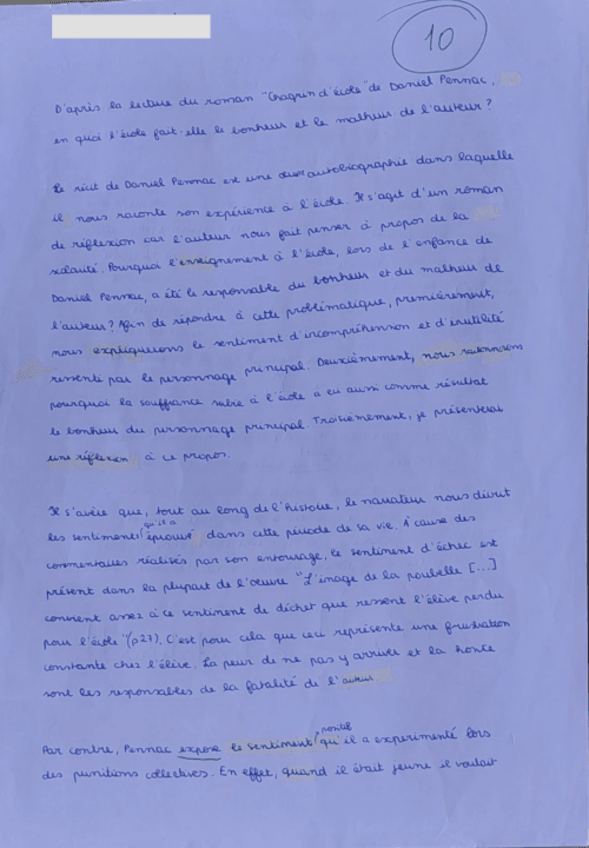 10
D'après la lecture du roman "Chagrin d'école" de Daniel Pennac,
en quoi l'école fait-elle le bonheur et le malheur de l'auteur?
Le récit de Daniel Pennac est une autobiographie dans laquelle
il nous raconte son expérience à l'école. Il s'agit d'un roman
de réflexion car l'auteur nous fait penser à propos de la
scolarité. Pourquoi l'enseignement à l'école, lors de l'enfance de
Daniel Pennac, a été le responsable du bonheur et du malheur de
l'auteur? Afin de répondre à cette problématique, premièrement,
nous expliquerons le sentiment d'incompréhension et d'inutilité
ressenti par le personnage principal. Deuxièmement, nous raisonnerons
pourquoi la souffrance subie à l'école a eu aussi comme résultat
le bonheur du personnage principal. Troisièmement, je présenterai
une réflexion à ce propos.
Il s'avère que, tout au long de l'histoire, le narrateur nous décrit
les sentiments qu'il a éprouvé dans cette période de sa vie. À cause des
commentaires réalisés par son entourage, le sentiment d'échec est
présent dans la plupart de l'oeuvre "L'image de la poubelle [...]
convient assez à ce sentiment de déchet que ressent l'élève perdu
pour l'école" (p27). C'est pour cela que ceci représente une frustration
constante chez l'élève. La peur de ne pas y arriver et la honte
sont les responsables de la fatalité de l'auteur.
Par contre, Pennac expose le sentiment positif qu'il a experimenté lors
des punitions collectives. En effet, quand il était jeune il voulait